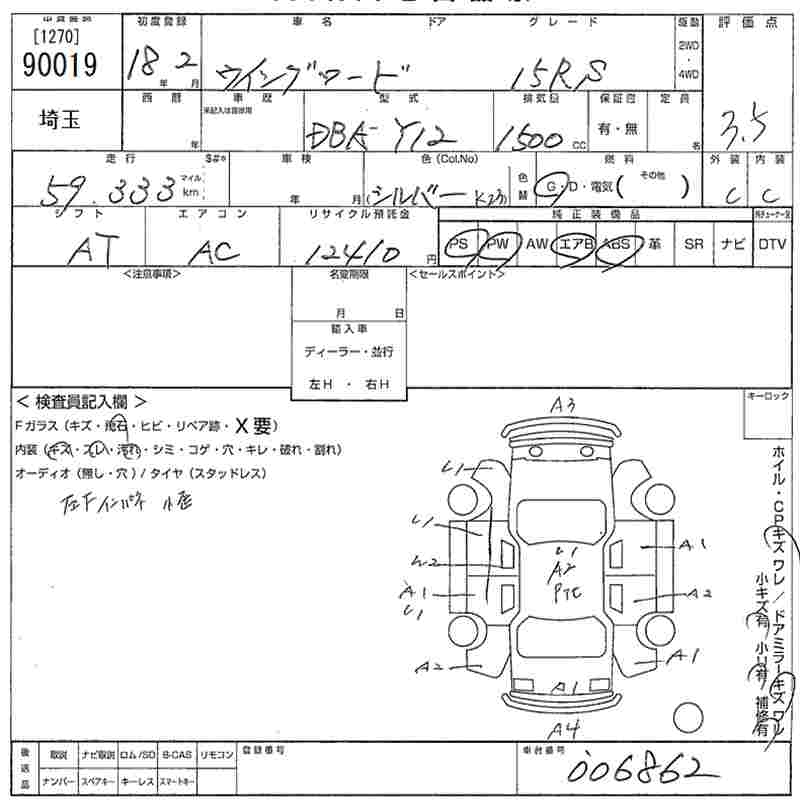 [1270]
90019
初度登録
18 2
年 月
車名
ウイングロード
ドア
グレード
15RS
駆動
2WD
・
4WD
評価点
3.5
埼玉
西暦
年
車歴
未記入は自家用
型式
DBA-Y12
排気量
1500 CC
保証書
有・無
定員
名
走行
59.333
マイル
km
$#※
車検
年 月
色(Col.No)
(シルバー K23)
色替
燃料
G・D・電気( その他 )
外装
C
内装
C
シフト
AT
エアコン
AC
リサイクル預託金
12410 円
純正装備品
PS PW AW エアB ABS 革 SR ナビ DTV
<注意事項>
名変期限
月 日
輸入車
ディーラー・並行
左H ・ 右H
<セールスポイント>
<検査員記入欄>
Fガラス(キズ・飛石・ヒビ・リペア跡・X要)
内装(キズ・スレ・汚れ・シミ・コゲ・穴・キレ・破れ・割れ)
オーディオ(無し・穴)/タイヤ(スタッドレス)
キーロック
ホイル・CPキズ ワレ / ドアミラーキズ ワレ
小キズ有 小U有 補修有
A3
U1
U1
A1
U2
U1
A2
PTC
A1
U1
A2
A2
A1
A1
A4
後送品
取説 ナビ取説 ロム/SD B-CAS リモコン
ナンバー スペアキー キーレス スマートキー
登録番号
車台番号
006862